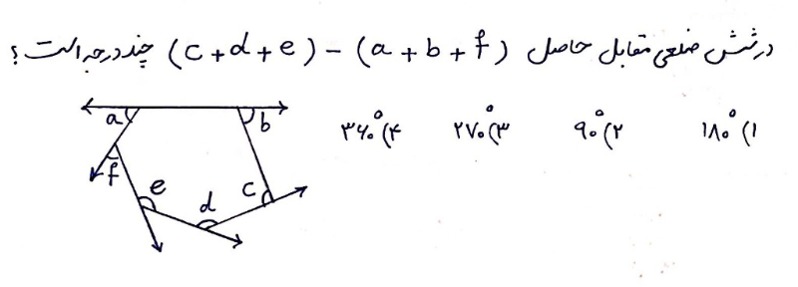 در شش ضلعی مقابل حاصل (c+d+e) - (a+b+f) چند درجه است؟
۱) ۱۸۰° ۲) ۹۰° ۳) ۲۷۰° ۴) ۳۶۰°
a
b
f
e
d
c